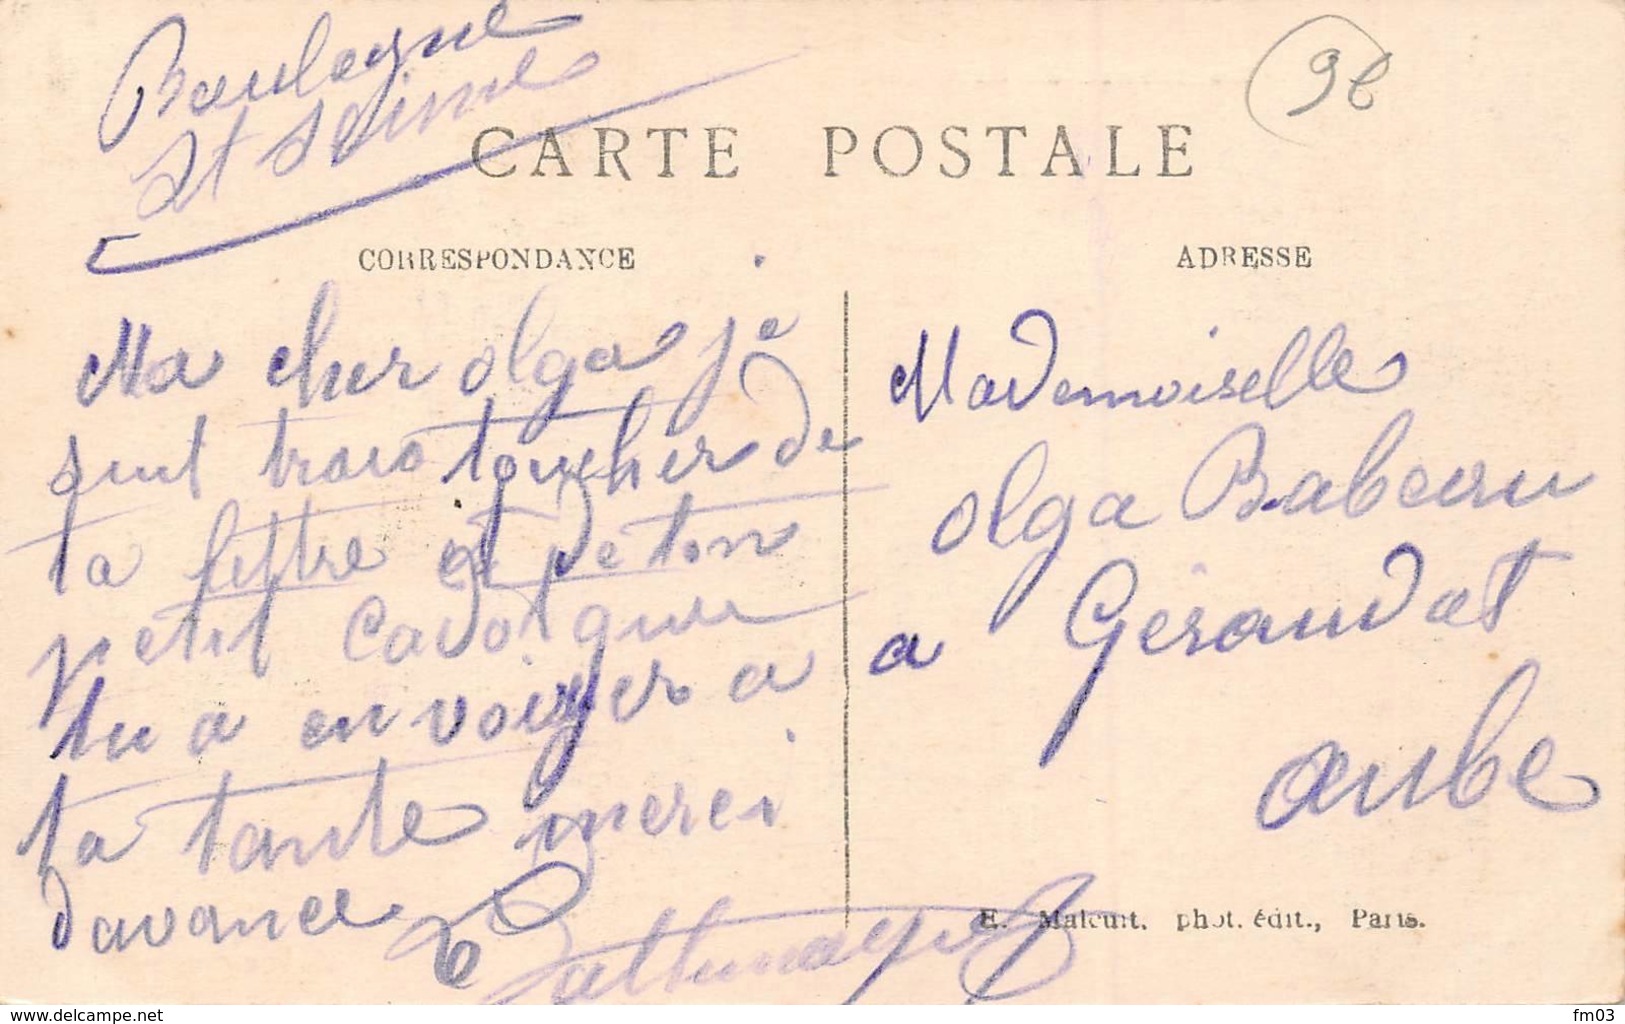 Boulogne
St Seine
9E
CARTE POSTALE
CORRESPONDANCE
Ma cher olga je
suit trais toucher de
ta lettre et de ton
petit cadot que
tu a envoiyer a
ta tante merci
davance
ADRESSE
Mademoiselle
olga Babeau
a Géraudot
aube
E. Malcuit, phot. édit., Paris.
www.delcampe.net
fm03